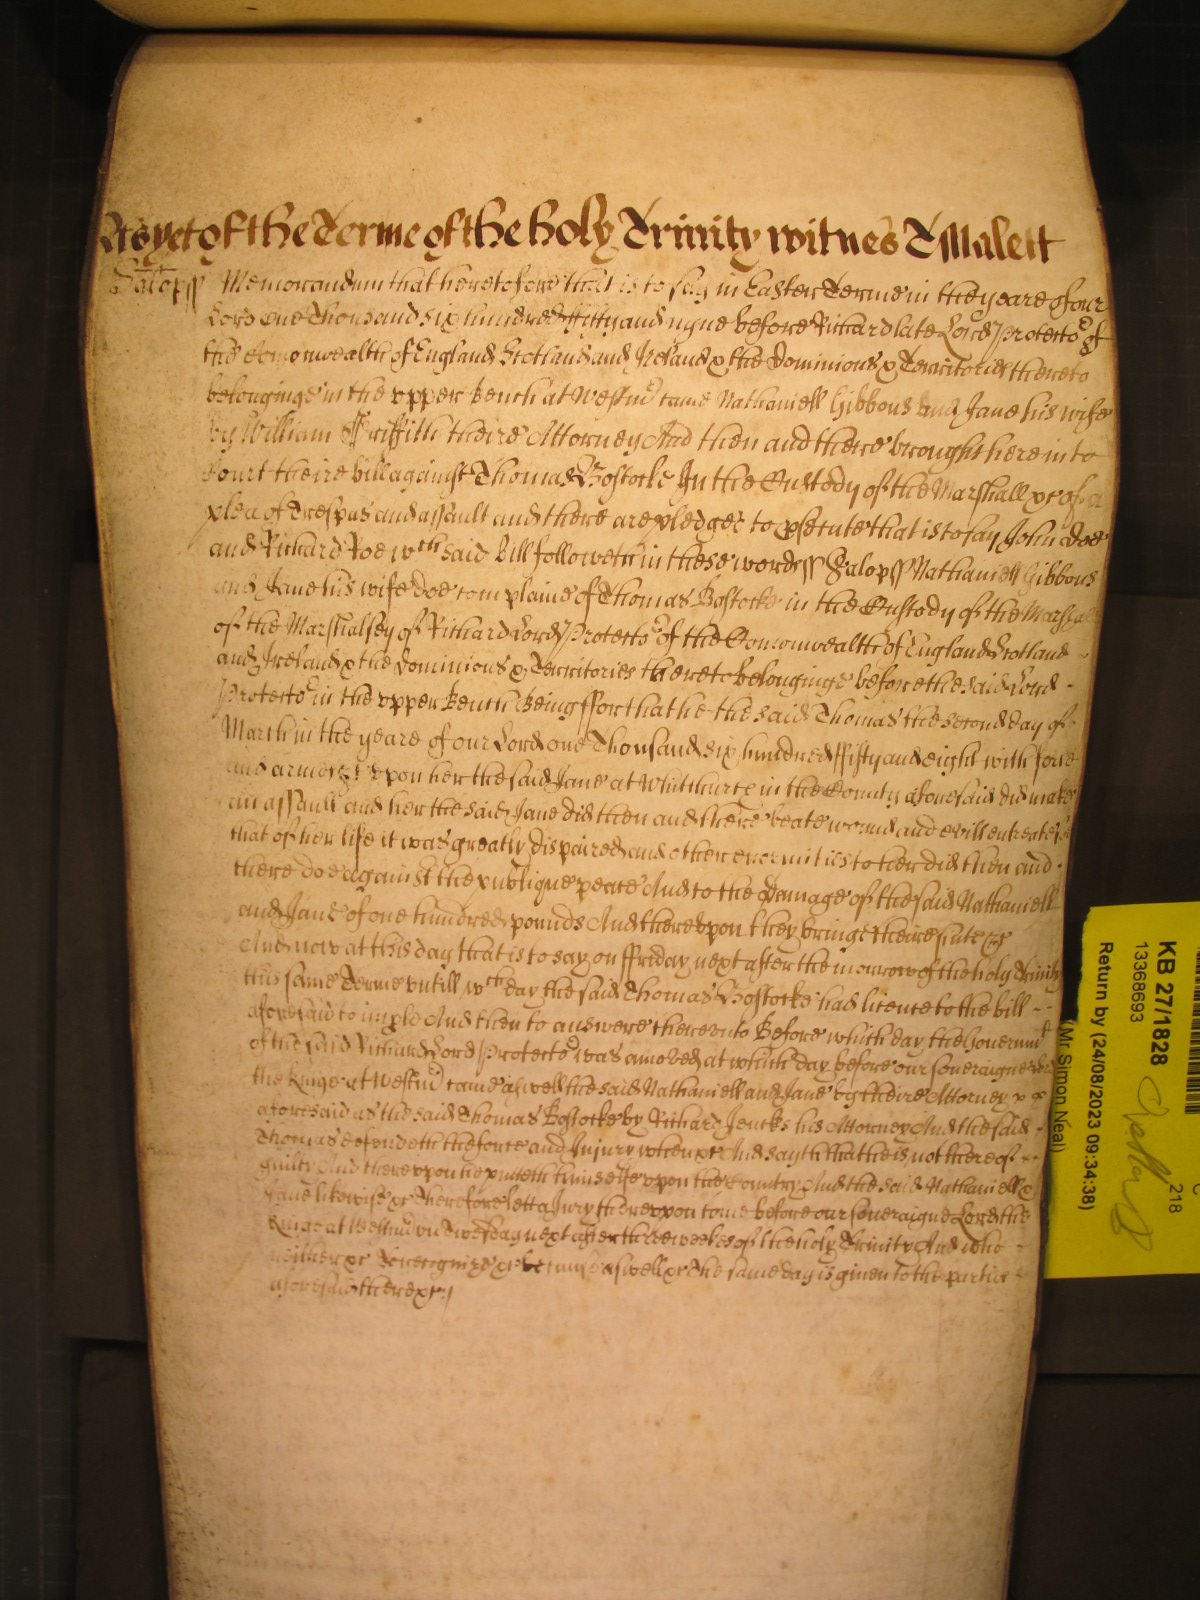 As yet of the Terme of the holy Trinity witnes T Malett
Salopss Memorandum that heretofore that is to say in Easter Terme in the yeare of our
Lord one Thousand six hundred fifty and nyne before Richard late Lord Protector of
the Comonwealth of England Scotland and Ireland & the Dominions & Territories thereto
belonginge in the upper bench at Westmr came Nathaniell Gibbons and Jane his wife
by William Griffith theire Attorney And then and there brought here into
Court theire bill against Thomas Bostocke In the Custody of the Marshall &c of a
plea of Trespas and assault and there are pledges to psecute that is to say John Doe
and Richard Roe wch said Bill followeth in these wordes ss Salopss Nathaniell Gibbons
and Jane his wife doe complaine of Thomas Bostocke in the Custody of the Marshall
of the Marshalsey of Richard Lord Protector of the Comonwealth of England Scotland
and Ireland & the Dominions & Territories thereto belonginge before the said Lord
Protector in the upper bench Being ffor that he the said Thomas the second day of
March in the yeare of our Lord one Thousand six hundred ffifty and eight with force
and armes &c upon her the said Jane at Whitchurch in the County aforesaid did make
an assault and her the said Jane did then and there beate wound and evill entreate soe
that of her life it was greatly dispaired and other enormities to her did then and
there doe against the publique peace And to the Damage of the said Nathaniell
and Jane of one hundred pounds And thereupon they bringe theire suite &c
And now at this day that is to say on ffriday next after the morrow of the holy Trinity
this same Terme untill wch day the said Thomas Bostocke had licence to the bill
aforesaid to imple And then to answere thereunto Before which day the
of the said Richard Lord Protector was amoved at which day before our soveraigne Lord
the Kinge at Westmr came aswell the said Nathaniell and Jane by theire Attorney
aforesaid as the said Thomas Bostocke by Richard Jencks his Attorney And the said
Thomas defendeth the force and Injury when &c And sayth that he is not thereof
guilty And thereupon he putteth himselfe upon the Country And the said Nathaniell &
Jane likewise &c Therefore lett a Jury thereupon come before our soveraigne Lord the
Kinge at Westmr on Wensday next after three weekes of the holy Trinity And who
neither &c To recognize &c because aswell &c The same day is given to the parties
aforesaid there &c
KB 27/1828
13368693
Return by (24/08/2023 09:34:38)
(Mr Simon Neal)
218